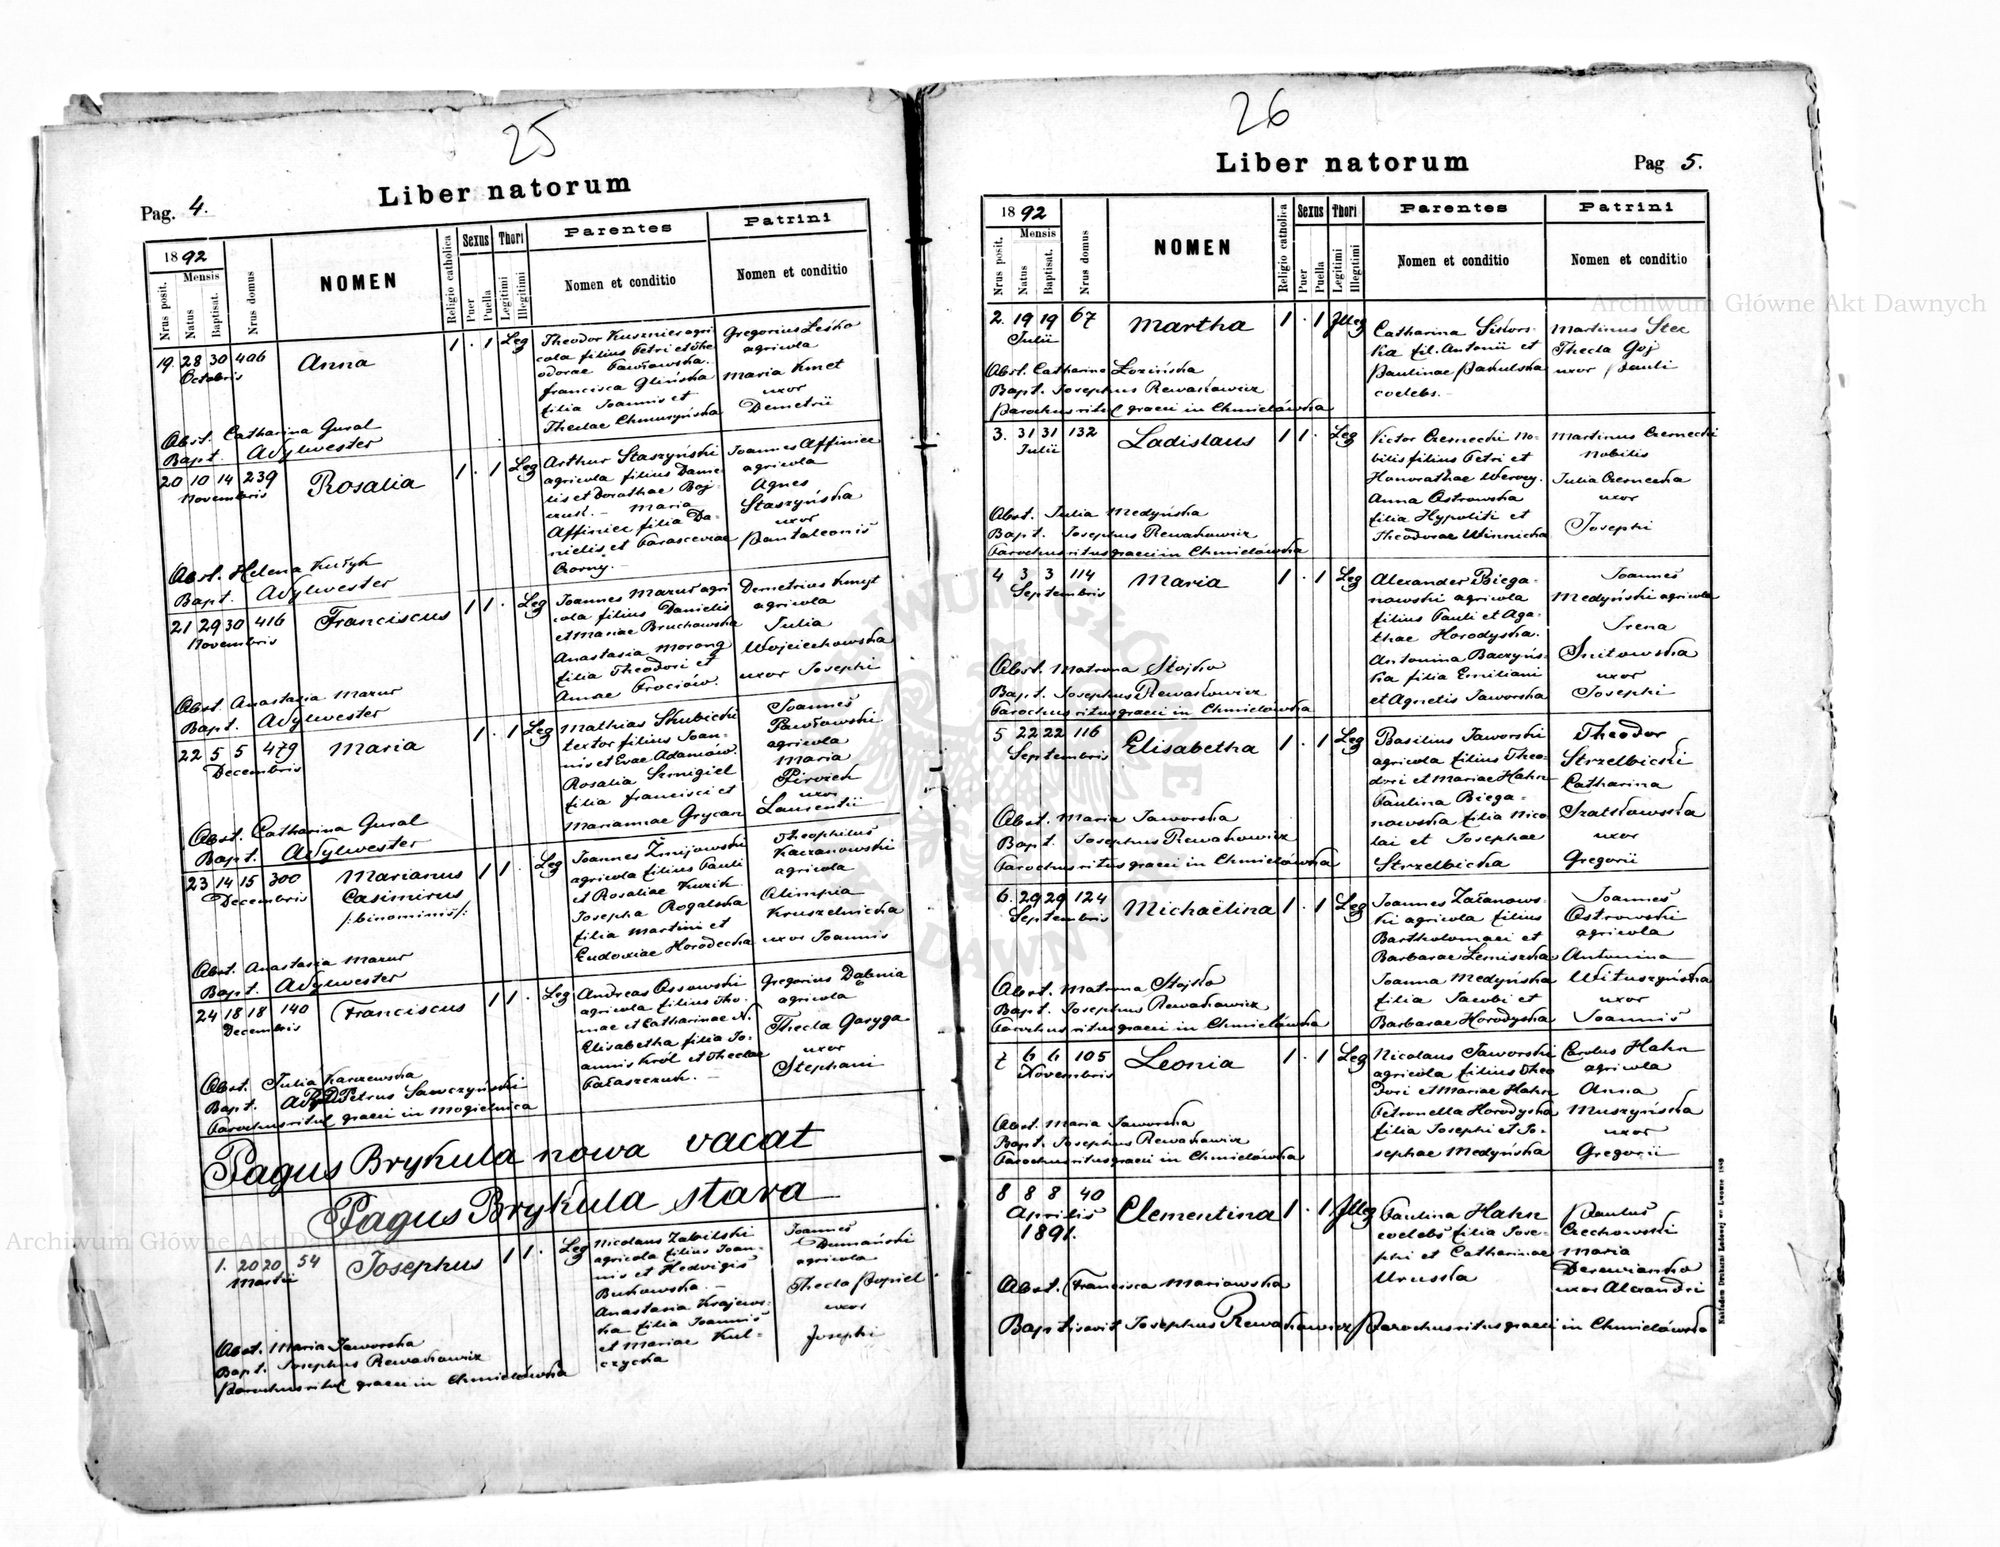 25
Liber natorum
Pag. 4.
1892
Mensis
Nrus posit.
Natus
Baptisat.
Nrus domus
NOMEN
Religio catholica
Sexus
Puer
Puella
Thori
Legitimi
Illegitimi
Parentes
Nomen et conditio
Patrini
Nomen et conditio
19. 28 30 406 Anna 1 . 1 Leg
Octobris
Theodor Kusznier agri
cola filius Petri et The
odorae Pawłowska.
Francisca Glińska
filia Joannis et
Theclae Chmurzyńska
Gregorius Leśko
agricola
Maria Kmet
uxor
Demetrii
Obst. Catharina Gural
Bapt. Adylwester
20 10 14 239 Rosalia 1 . 1 Leg
Novembris
Arthur Staszyński
agricola filius Danie
lis et Dorathae Boj-
Maria
Affinicz filia Da-
nielis et Parasceviae
Czorny.
Joannes Affinicz
agricola
Agnes
Staszyńska
uxor
Pantaleonis
Obst. Helena Kułyk
Bapt. Adylwester
21 29 30 416 Franciscus 1 1 . Leg
Novembris
Joannes Mazur agri
cola filius Danielis
et Mariae Bruchowska
Anastasia Morong
filia Theodori et
Annae Prociów.
Demetrius Kmyt
agricola
Julia
Wojciechowska
uxor Josephi
Obst. Anastasia Mazur
Bapt. Adylwester
22 5 5 479 Maria 1 . 1 Leg
Decembris
Mathias Skubicki
textor filius Joan-
nis et Evae Adamów.
Rosalia Szmigiel
filia Francisci et
Mariannae Grycan
Joannes
Pawłowski
agricola
Maria
Pirożek
uxor
Laurentii
Obst. Catharina Gural
Bapt. Adylwester
23 14 15 300 Marianus 1 1 . Leg
Decembris
Casimirus
/:binominis/:
Joannes Żmijowski
agricola filius Pauli
et Rosaliae Kuzik.
Josepha Rogalska
filia Martini et
Eudoxiae Horodecka
Theophilus
Kaczanowski
agricola
Olimpia
Kruszelnicka
uxor Joannis
Obst. Anastasia Mazur
Bapt. Adylwester
24 18 18 140 Franciscus 1 1 . Leg
Decembris
Andreas Ossowski
agricola filius Tho-
mae et Catharinae N.
Elisabetha filia Jo-
annis Król et Theclae
Pałaszczuk.
Gregorius Dąbnia
agricola
Thecla Goryga
uxor
Stephani
Obst. Julia Karczewska
Bapt. Petrus Sawczyński
Parochus ritus graeci in Mogielnica
Pagus Brykula nowa vacat
Pagus Brykula stara
1. 20 20 54 Josephus 1 1 . Leg
Martii
Nicolaus Zabilski
agricola filius Joan-
nis et Hedvigis
Bukowska.
Anastasia Krajews-
ka filia Joannis
et Mariae Kul-
czycka
Joannes
Dumański
agricola
Thecla Popiel
uxor
Josephi
Obst. Maria Jaworska
Bapt. Josephus Rewakowicz
Parochus ritus graeci in Chmielówka
26
Liber natorum
Pag 5.
1892
Mensis
Nrus posit.
Natus
Baptisat.
Nrus domus
NOMEN
Religio catholica
Sexus
Puer
Puella
Thori
Legitimi
Illegitimi
Parentes
Nomen et conditio
Patrini
Nomen et conditio
2. 19 19 67 Martha 1 . 1 Illeg
Julii
Catharina Sikors-
ka fil. Antonii et
Paulinae Pakulska
coelebs.
Martinus Stec
Thecla Goj
uxor Pauli
Obst. Catharina Łozińska
Bapt. Josephus Rewakowicz
Parochus ritus graeci in Chmielówka
3. 31 31 132 Ladislaus 1 1 . Leg
Julii
Victor Czernecki no-
bilis filius Petri et
Honorathae Werocy.
Anna Ostrowska
filia Hypoliti et
Theodorae Winnicka
Martinus Czernecki
nobilis
Julia Czernecka
uxor
Josephi
Obst. Julia Medyńska
Bapt. Josephus Rewakowicz
Parochus ritus graeci in Chmielówka
4 3 3 114 Maria 1 . 1 Leg
Septembris
Alexander Biega-
nowski agricola
filius Pauli et Aga-
thae Horodyska.
Antonina Baczyńs-
ka filia Emiliani
et Agnetis Jaworska
Joannes
Medyński agricola
Irena
Snitowska
uxor
Josephi
Obst. Matrona Stojko
Bapt. Josephus Rewakowicz
Parochus ritus graeci in Chmielówka
5 22 22 116 Elisabetha 1 . 1 Leg
Septembris
Basilius Jaworski
agricola filius Theo-
dori et Mariae Hahn
Paulina Biega-
nowska filia Nico
lai et Josephae
Strzelbicka
Theodor
Strzelbicki
Catharina
Szatkowska
uxor
Gregorii
Obst. Maria Jaworska
Bapt. Josephus Rewakowicz
Parochus ritus graeci in Chmielówka
6. 29 29 124 Michaëlina 1 . 1 Leg
Septembris
Joannes Załanows-
ki agricola filius
Bartholomaei et
Barbarae Lemiszka
Joanna Medyńska
filia Jacobi et
Barbarae Horodyska
Joannes
Ostrowski
agricola
Antonina
Wituszyńska
uxor
Joannis
Obst. Matrona Stojko
Bapt. Josephus Rewakowicz
Parochus ritus graeci in Chmielówka
7 6 6 105 Leonia 1 . 1 Leg
Novembris
Nicolaus Jaworski
agricola filius Theo
dori et Mariae Hahn
Petronella Horodyska
filia Josephi et Jo-
sephae Medyńska
Carolus Hahn
agricola
Anna
Muszyńska
uxor
Gregorii
Obst. Maria Jaworska
Bapt. Josephus Rewakowicz
Parochus ritus graeci in Chmielówka
8 8 8 40 Clementina 1 . 1. Illeg
Aprilis
1891.
Paulina Hahn
coelebs filia Jose-
phi et Catharinae
Urusska
Paulus
Czechowski
Maria
Derewianko
uxor Alexandri
Obst. Francisca Mariowska
Baptisavit Josephus Rewakowicz Parochus ritus graeci in Chmielówka
Nakładem Drukarni Ludowej we Lwowie 1889
Archiwum Główne Akt Dawnych
Archiwum Główne Akt Dawnych
ARCHIWUM GŁÓWNE AKT DAWNYCH